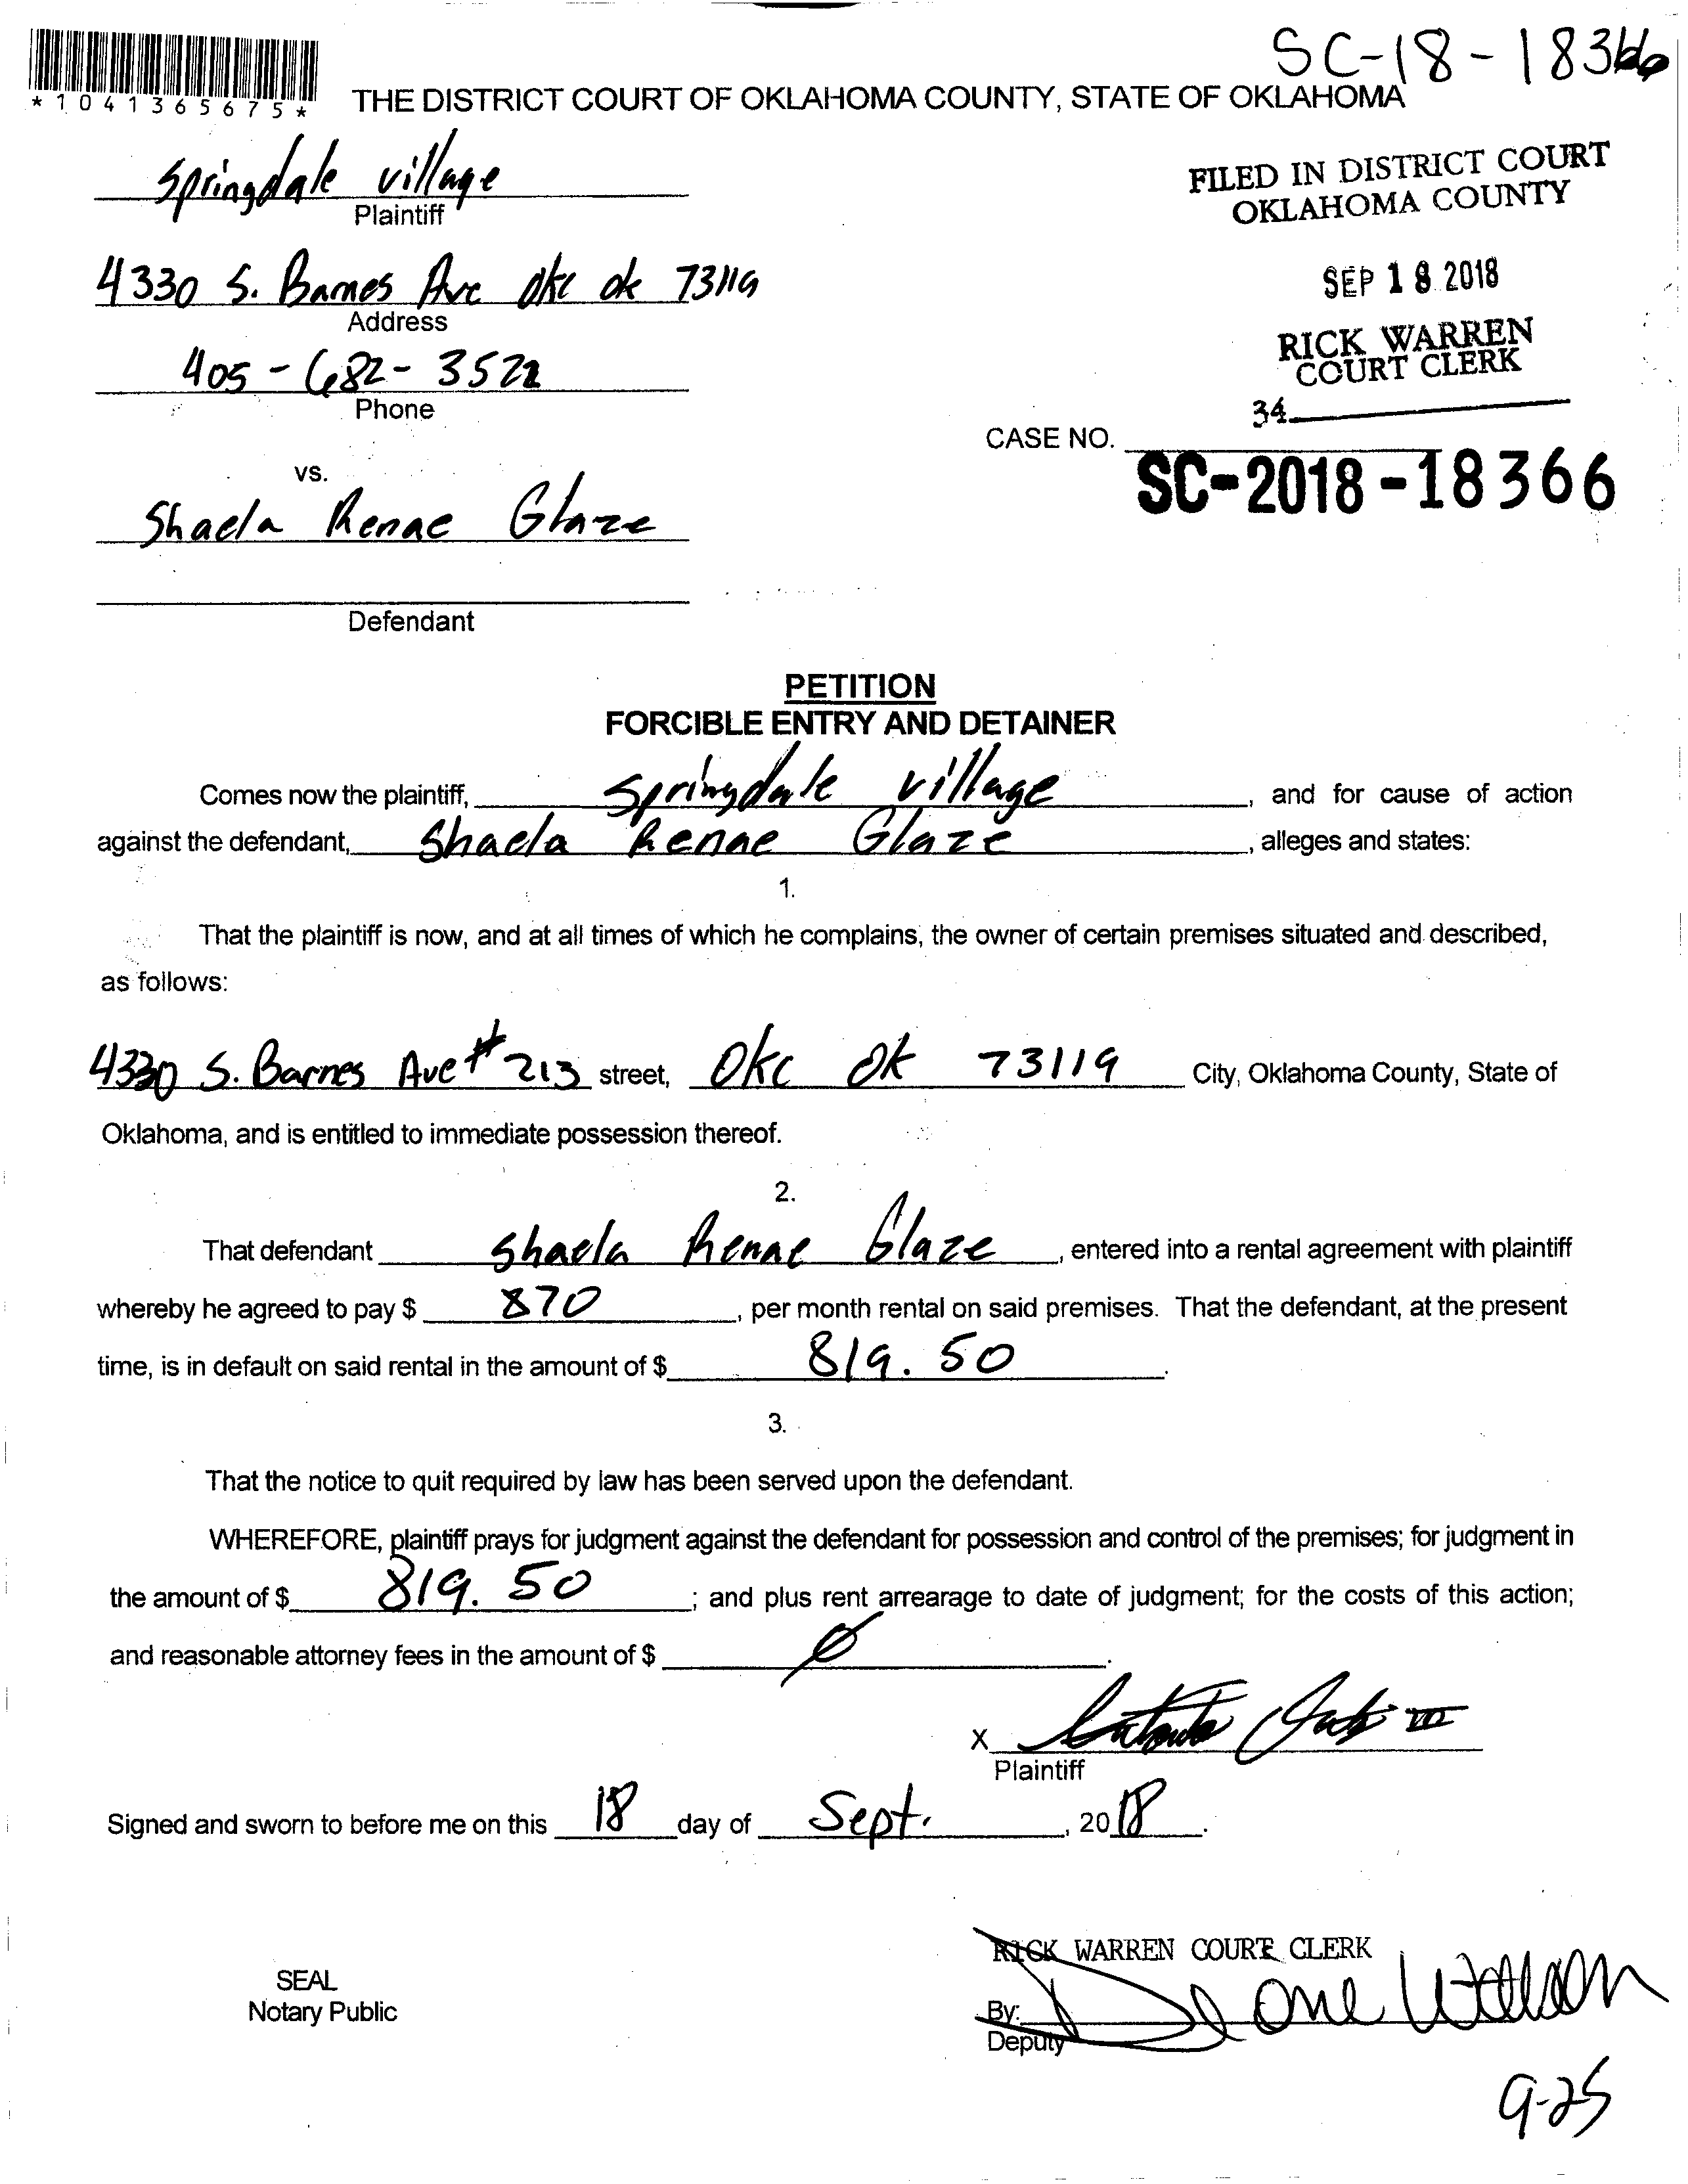 SC-18-18366
*1041365675*
THE DISTRICT COURT OF OKLAHOMA COUNTY, STATE OF OKLAHOMA
Springdale village
Plaintiff
FILED IN DISTRICT COURT
OKLAHOMA COUNTY
4330 S. Barnes Ave okc ok 73119
Address
SEP 18 2018
RICK WARREN
COURT CLERK
405-682-3522
Phone
34
CASE NO.
SC-2018-18366
vs.
Shaela Renae Glaze
Defendant
PETITION
FORCIBLE ENTRY AND DETAINER
Comes now the plaintiff, Springdale village, and for cause of action
against the defendant, Shaela Renae Glaze, alleges and states:
1.
That the plaintiff is now, and at all times of which he complains, the owner of certain premises situated and described,
as follows:
4330 S. Barnes Ave #213 street, Okc Ok 73119 City, Oklahoma County, State of
Oklahoma, and is entitled to immediate possession thereof.
2.
That defendant Shaela Renae Glaze, entered into a rental agreement with plaintiff
whereby he agreed to pay $ 870, per month rental on said premises. That the defendant, at the present
time, is in default on said rental in the amount of $ 819.50.
3.
That the notice to quit required by law has been served upon the defendant.
WHEREFORE, plaintiff prays for judgment against the defendant for possession and control of the premises; for judgment in
the amount of $ 819.50; and plus rent arrearage to date of judgment; for the costs of this action;
and reasonable attorney fees in the amount of $ 0.
X
Plaintiff
Signed and sworn to before me on this 18 day of Sept., 2018.
RICK WARREN COURT CLERK
SEAL
Notary Public
By:
Deputy
9-25